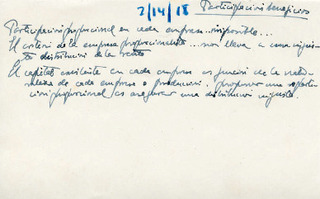 2/14/18 Participación beneficios
Participación proporcional en cada empresa... imposible...
El criterio de la empresa proporcionalista... nos lleva a una injus-
ta distribución de la renta
El capital existente en cada empresa es función de la natu-
raleza de cada empresa o producción. Propugnar una
proporcional es asegurar una distribución injusta.